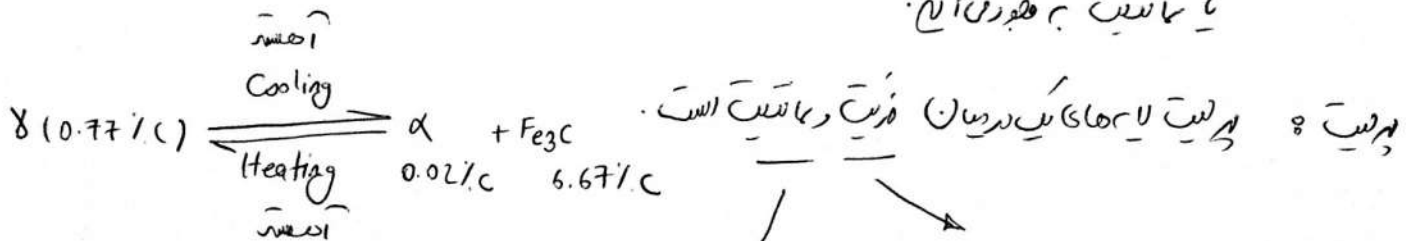 یا سمانتیت به وجود می‌آید.
آهسته
Cooling
γ (0.77 % C) ⇌ α + Fe3C
Heating 0.02 % C 6.67 % C
آهسته
پرلیت : پرلیت لایه‌های یک درمیان فریت و سمانتیت است.